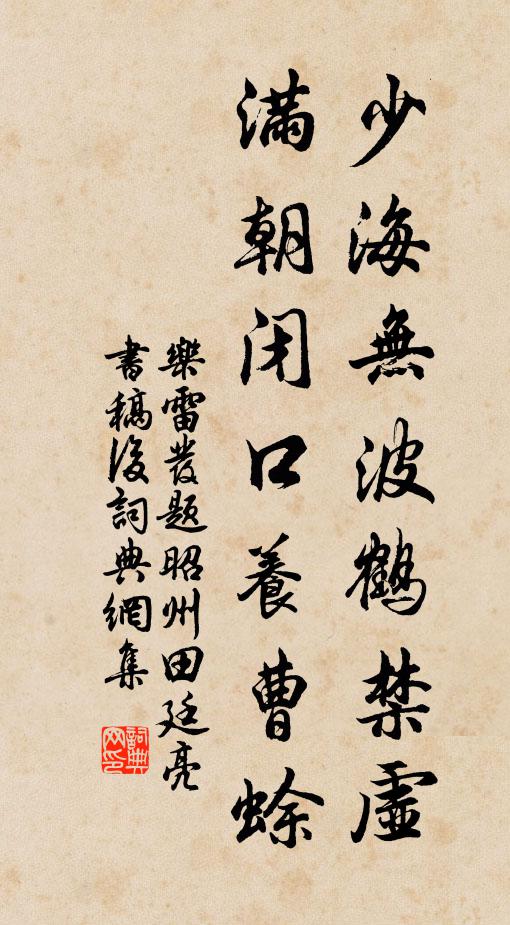 少海無波鶴禁虛
滿朝閉口養曹蜍
樂雷發題昭州田廷亮
書稿後詞典網集
詞典網印